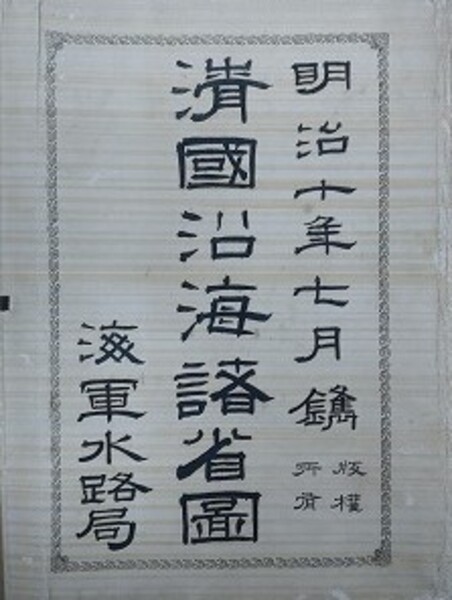 明治十年七月鐫
版權
所有
清國沿海諸省圖
海軍水路局